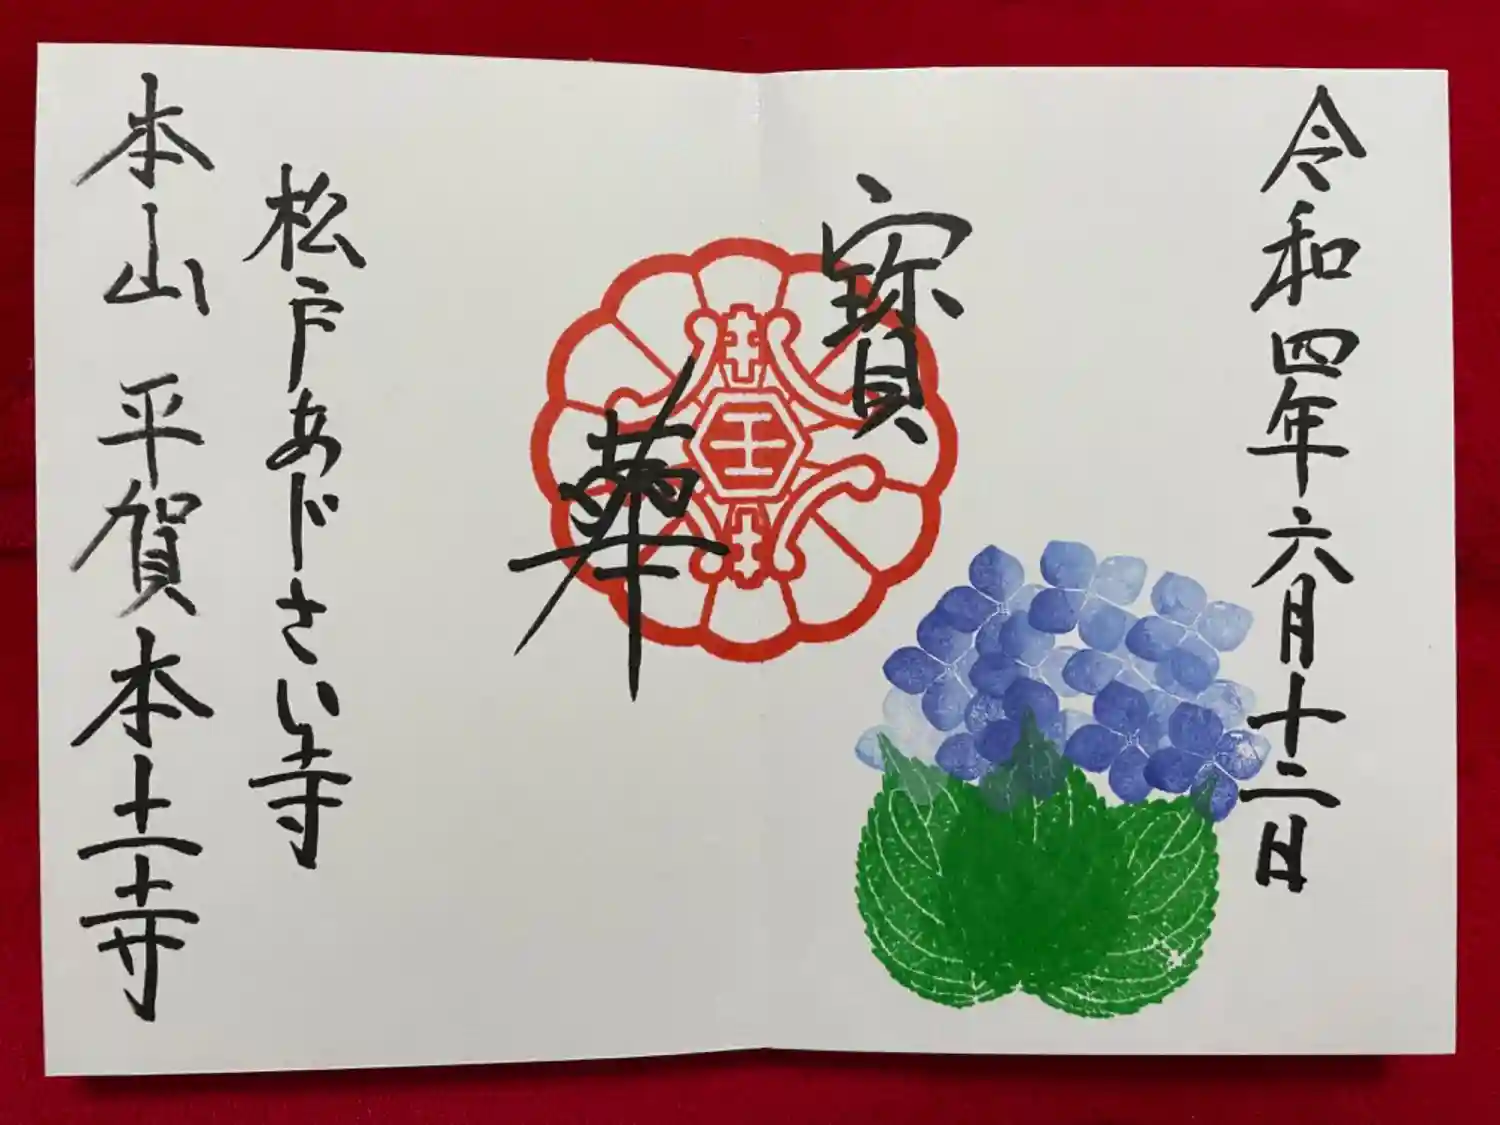 令和四年六月十二日
寳華
松戸あじさい寺
本山 平賀 本土寺